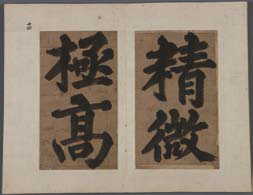 精微
極高